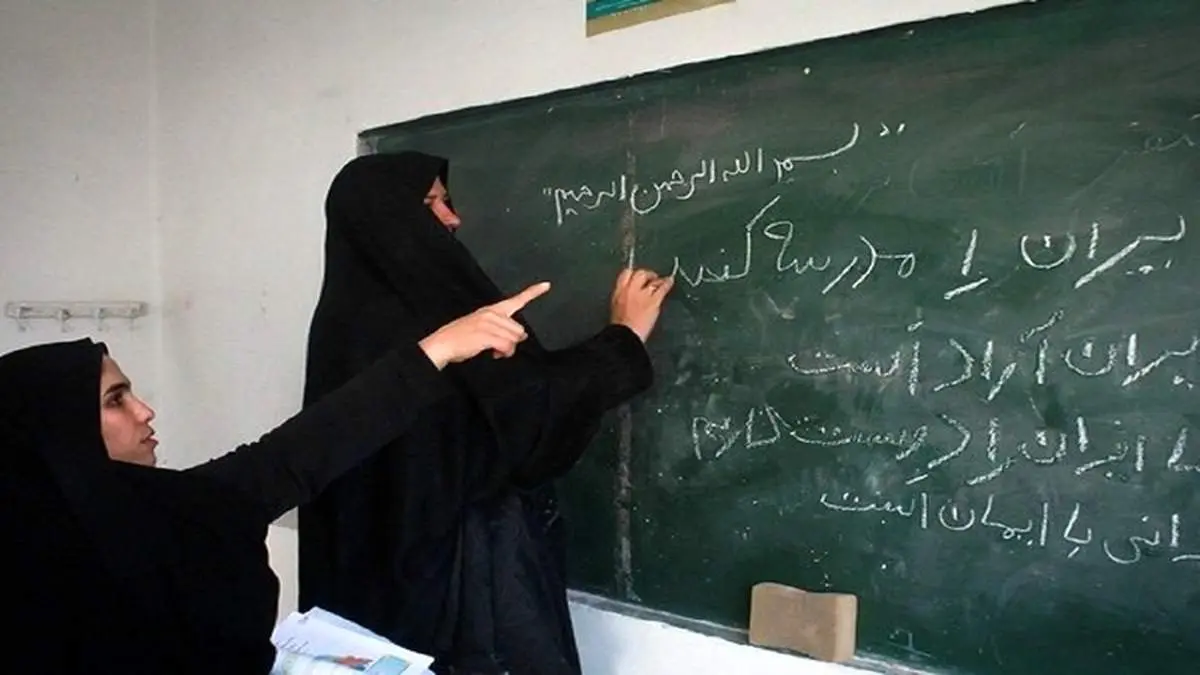 "بسم الله الرحمن الرحیم"
یران را مدرسه کنید
یران آزاد است
ایران را دوست داریم
انی با ایمان است